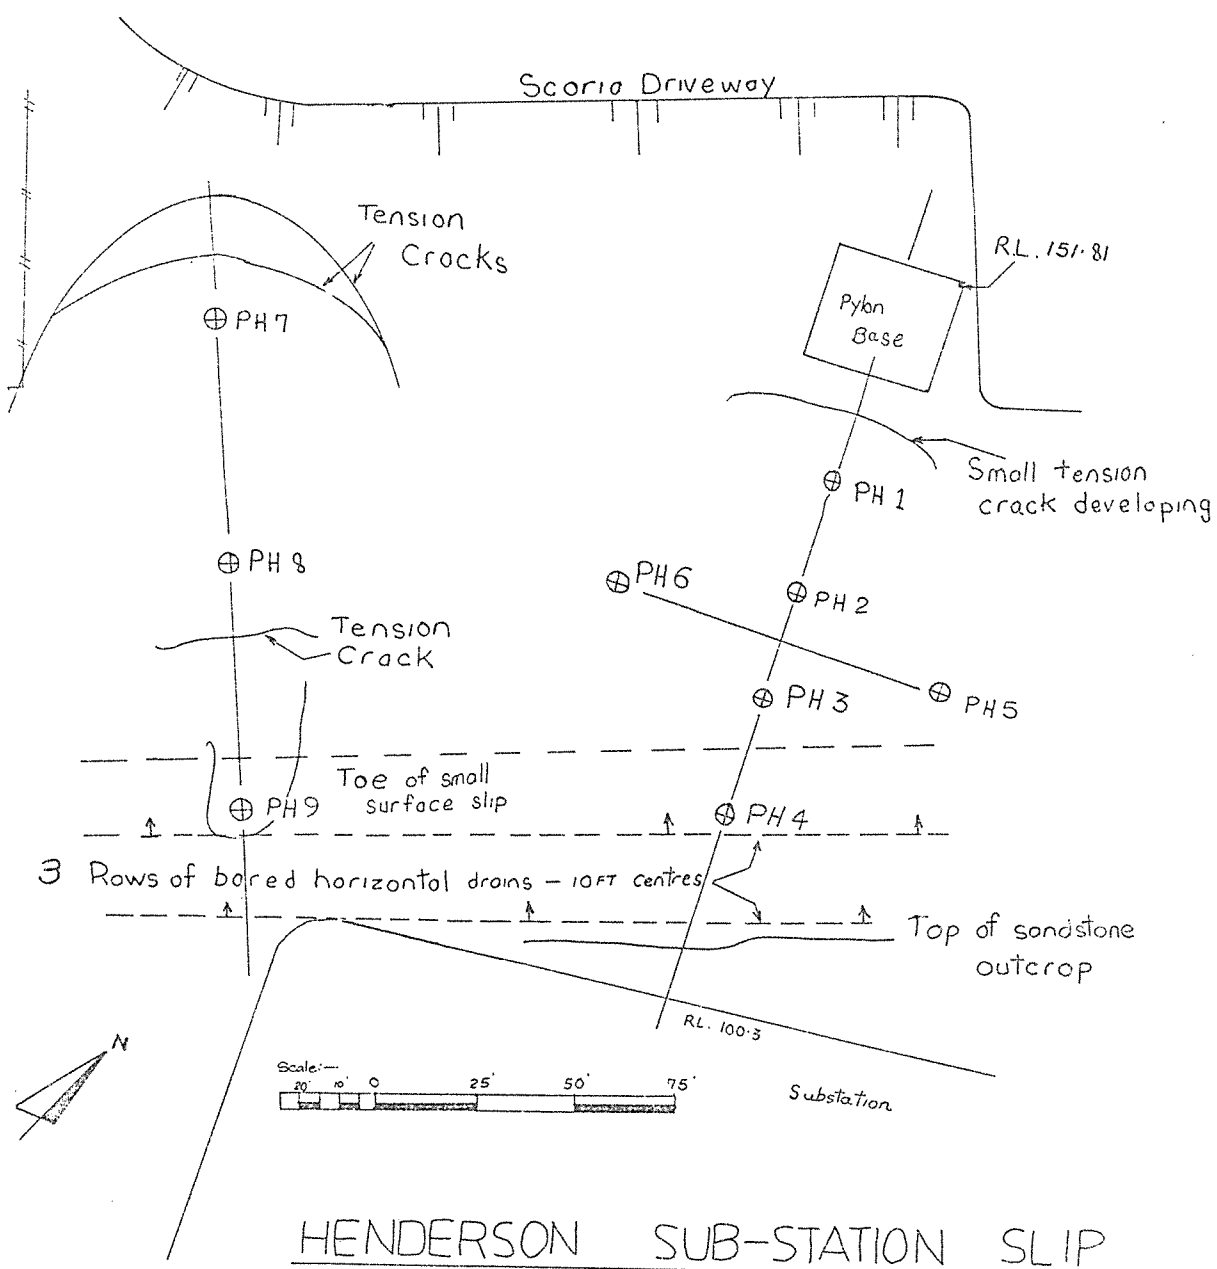 Scoria Driveway
Tension
Cracks
R.L. 151.81
Pylon
Base
PH 7
Small tension
crack developing
PH 1
PH 8
PH 6
PH 2
Tension
Crack
PH 3
PH 5
Toe of small
surface slip
PH 9
PH 4
3 Rows of bored horizontal drains – 10FT centres
Top of sandstone
outcrop
RL. 100.3
N
Scale:—
20' 10' 0 25' 50' 75'
Substation
HENDERSON SUB-STATION SLIP